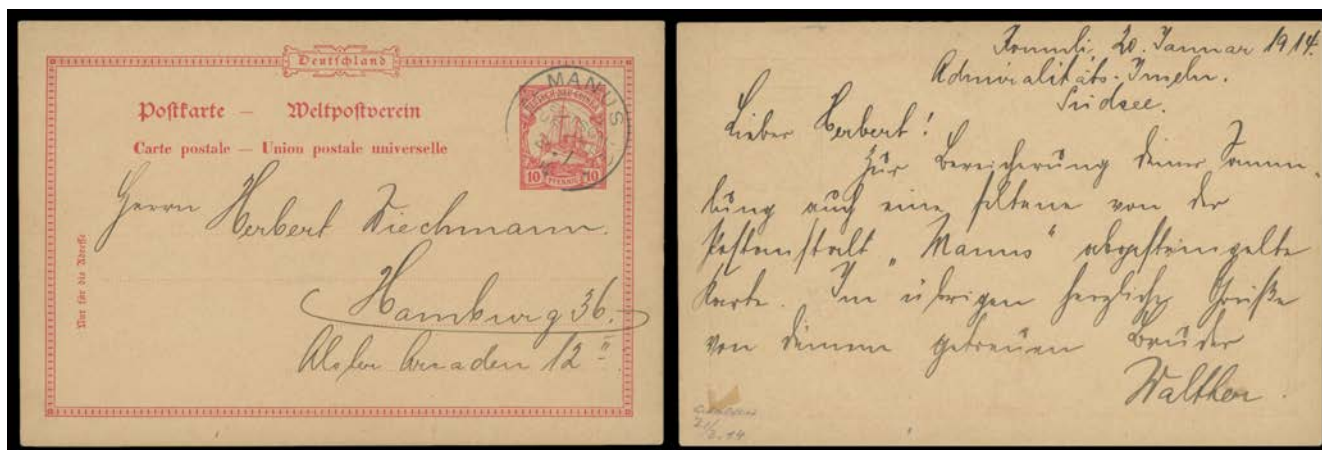 Deutschland
Postkarte — Weltpostverein
Carte postale — Union postale universelle
MANUS
DEUTSCH-NEU-GUINEA
10 PFENNIG 10
Herrn Herbert Tiechmann.
Hamburg 36.
Alster Arcaden 12 II
Nur für die Adresse
20. Januar 1914.
Admiralitäts-Inseln.
Südsee.
Lieber Herbert!
Zur Bereicherung deiner Samm-
lung auch eine seltene von der
Postanstalt „Manus“ abgestempelte
Karte. Im übrigen herzliche Grüße
von deinem getreuen Bruder
Walther.